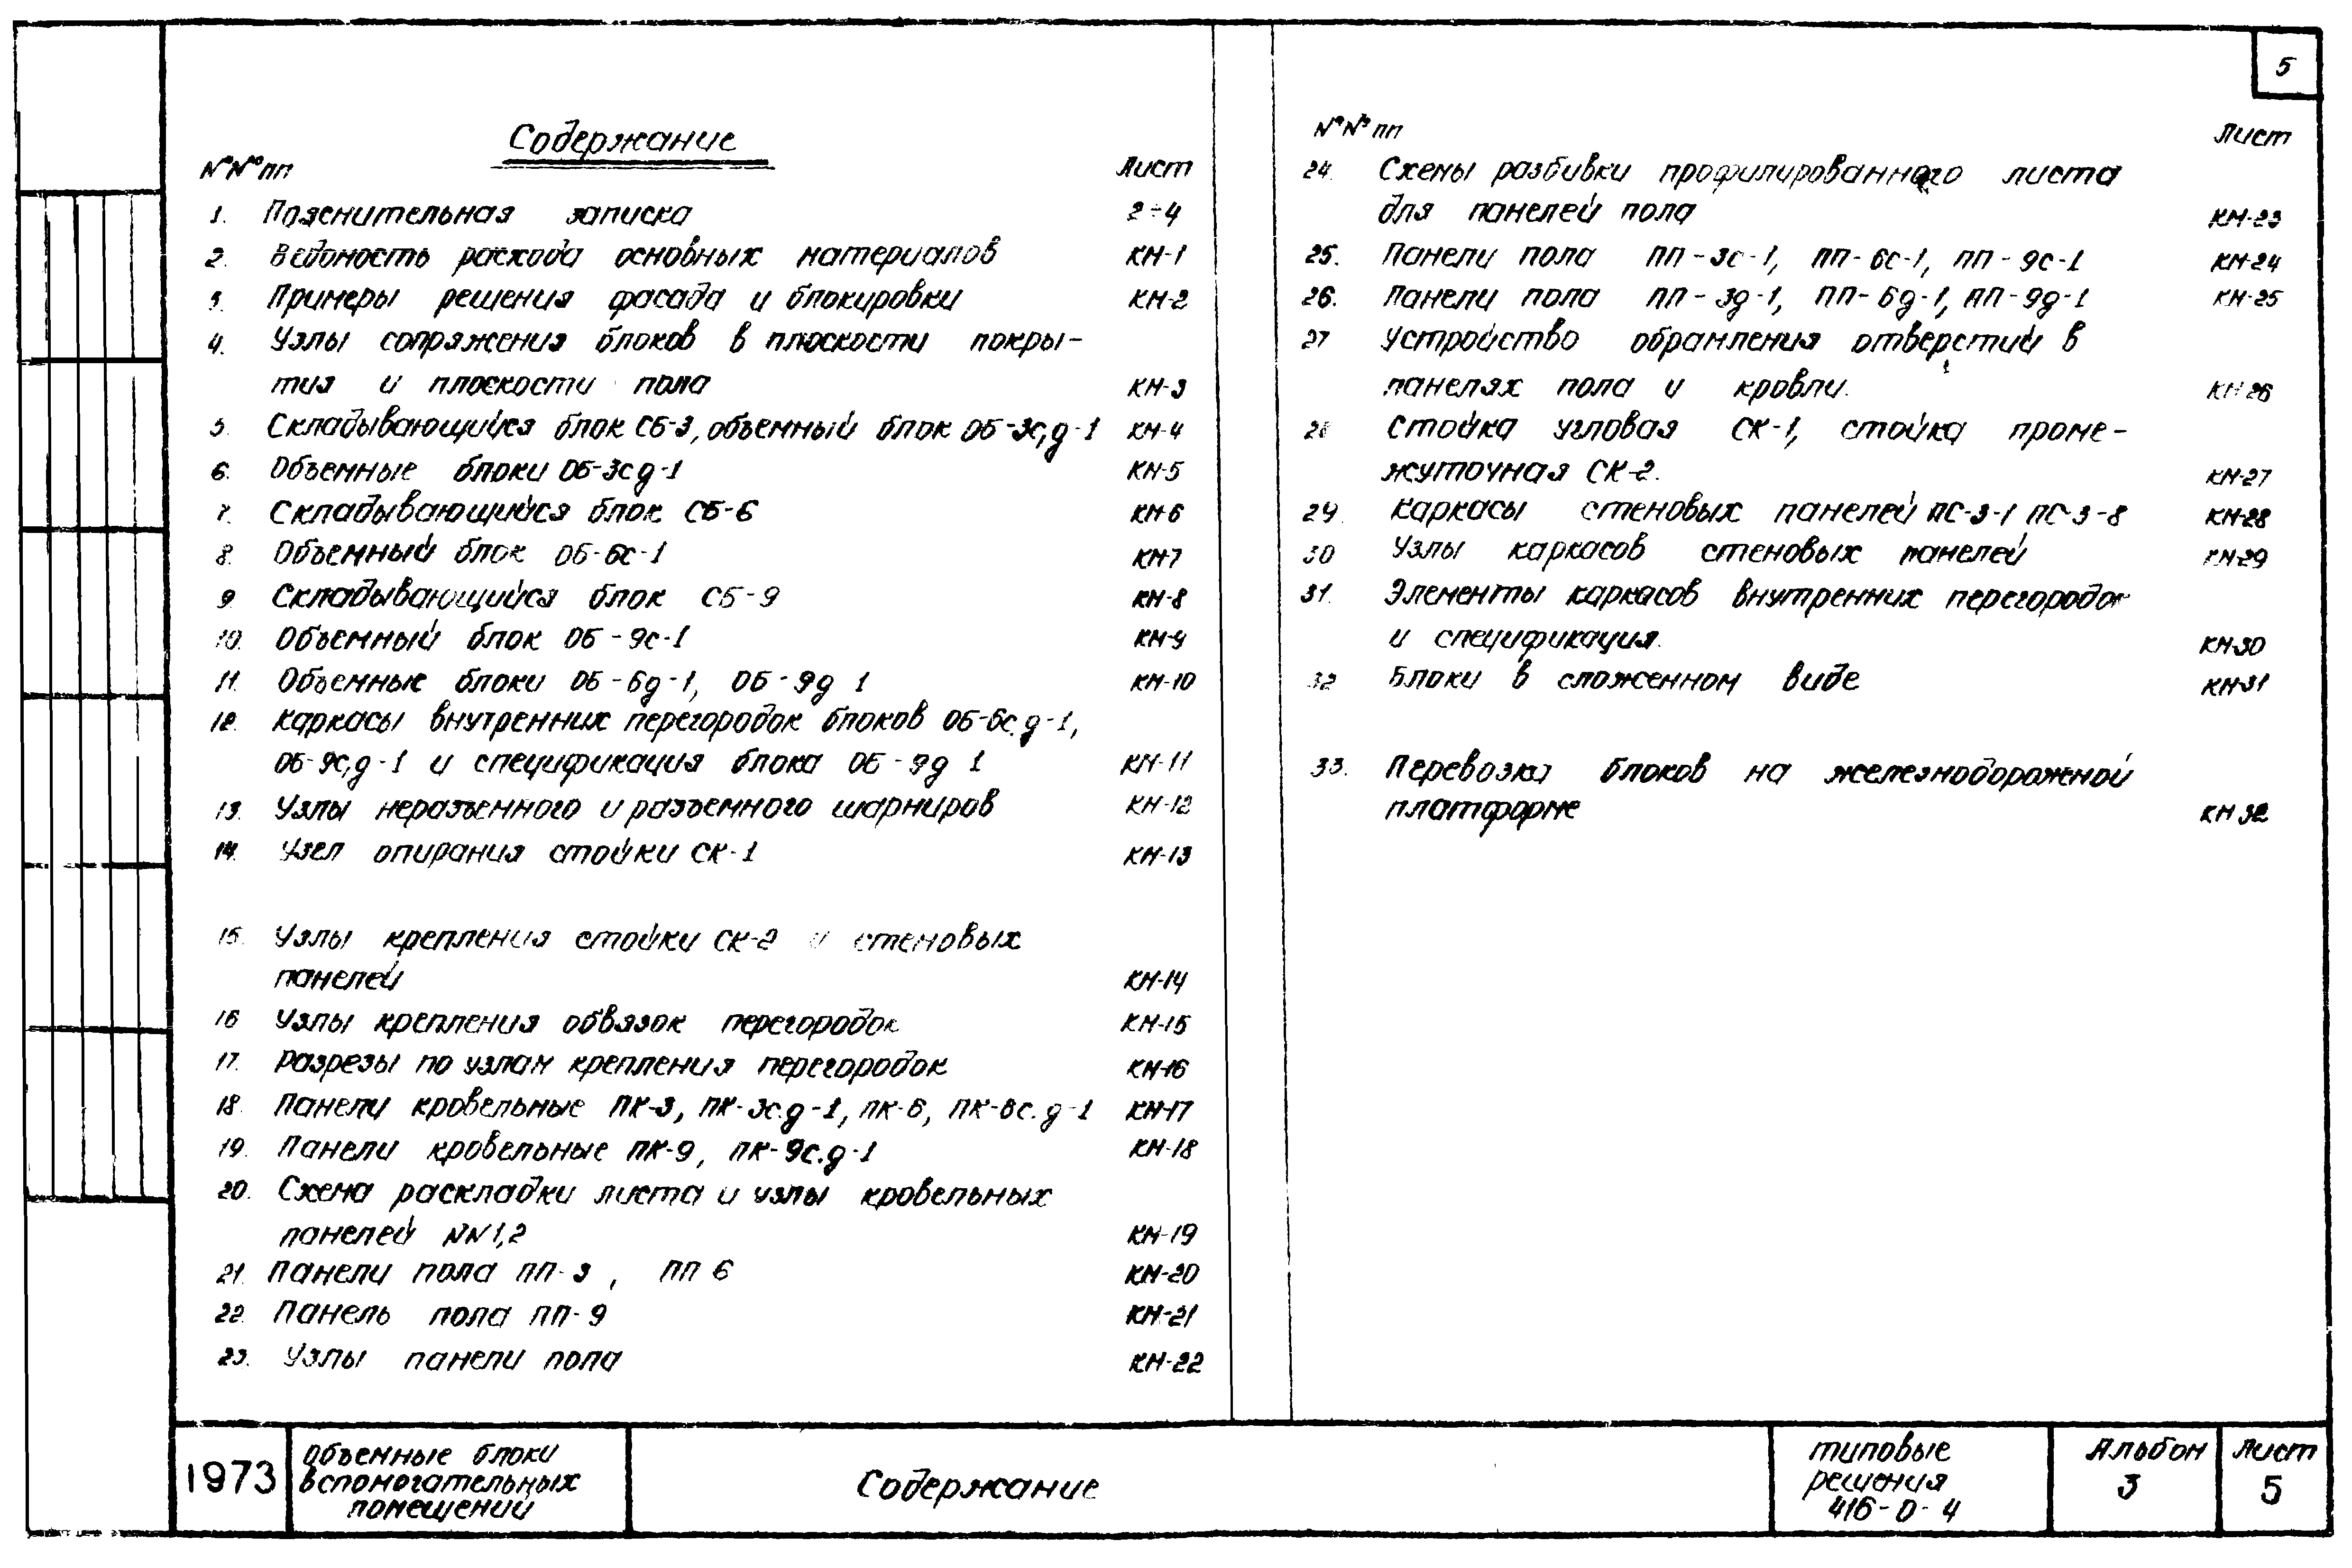 5
Содержание
№№ пп Лист
1. Пояснительная записка 2÷4
2. Ведомость расхода основных материалов КМ-1
3. Примеры решения фасада и блокировки КМ-2
4. Узлы сопряжения блоков в плоскости покры-
тия и плоскости пола КМ-3
5. Складывающийся блок СБ-3, объемный блок ОБ-3с,д-1 КМ-4
6. Объемные блоки ОБ-3сд-1 КМ-5
7. Складывающийся блок СБ-6 КМ-6
8. Объемный блок ОБ-6с-1 КМ-7
9. Складывающийся блок СБ-9 КМ-8
10. Объемный блок ОБ-9с-1 КМ-9
11. Объемные блоки ОБ-6д-1, ОБ-9д 1 КМ-10
12. Каркасы внутренних перегородок блоков ОБ-6с.д-1,
ОБ-9с,д-1 и спецификация блока ОБ-9д 1 КМ-11
13. Узлы неразъемного и разъемного шарниров КМ-12
14. Узел опирания стойки СК-1 КМ-13
15. Узлы крепления стойки СК-2 и стеновых
панелей КМ-14
16 Узлы крепления обвязок перегородок КМ-15
17. Разрезы по узлам крепления перегородок КМ-16
18. Панели кровельные ПК-3, ПК-3с.д-1, ПК-6, ПК-6с.д-1 КМ-17
19. Панели кровельные ПК-9, ПК-9с.д-1 КМ-18
20. Схема раскладки листа и узлы кровельных
панелей NN1,2 КМ-19
21. Панели пола ПП-3, ПП 6 КМ-20
22. Панель пола ПП-9 КМ-21
23. Узлы панели пола КМ-22
№№ пп Лист
24. Схемы разбивки профилированного листа
для панелей пола КМ-23
25. Панели пола ПП-3с-1, ПП-6с-1, ПП-9с-1 КМ-24
26. Панели пола ПП-3д-1, ПП-6д-1, ПП-9д-1 КМ-25
27 Устройство обрамления отверстий в
панелях пола и кровли. КМ 26
28 Стойка угловая СК-1, стойка проме-
жуточная СК-2. КМ-27
29. Каркасы стеновых панелей ПС-3-1 ПС-3-8 КМ-28
30 Узлы каркасов стеновых панелей КМ-29
31. Элементы каркасов внутренних перегородок
и спецификация. КМ-30
32 Блоки в сложенном виде КМ-31
33. Перевозка блоков на железнодорожной
платформе КМ 32
1973
Объемные блоки
вспомогательных
помещений
Содержание
Типовые
решения
416-0-4
Альбом
3
Лист
5